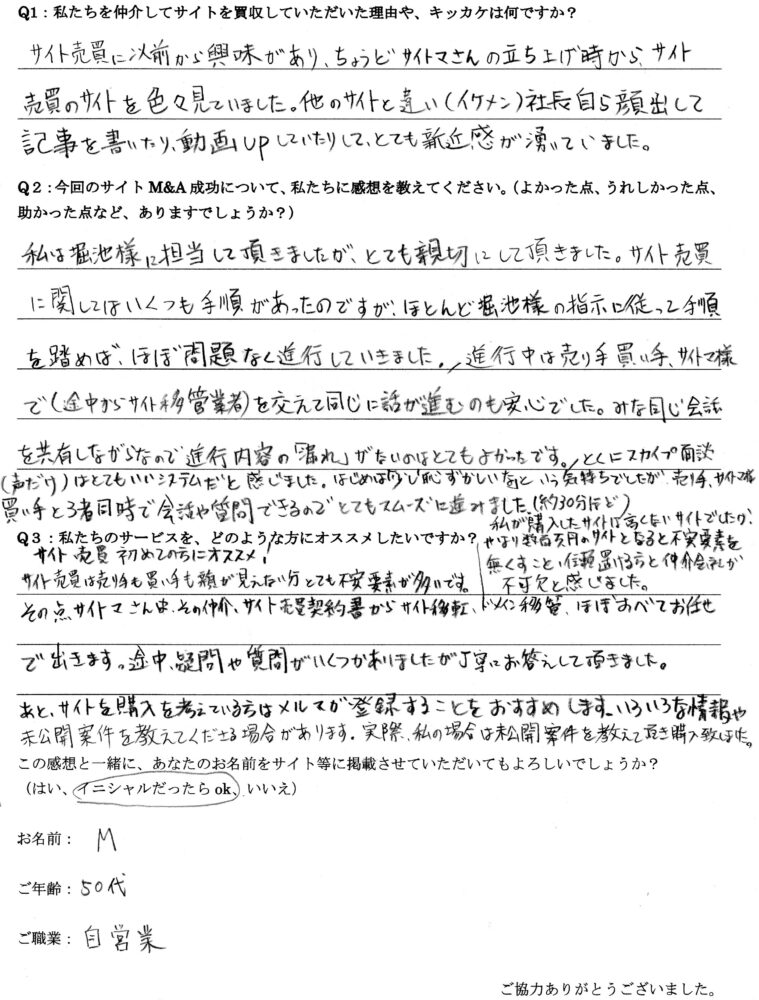 Q1：私たちを仲介してサイトを買収していただいた理由や、キッカケは何ですか？
サイト売買に以前から興味があり、ちょうどサイトマさんの立ち上げ時から、サイト
売買のサイトを色々見ていました。他のサイトと違い（イケメン）社長自ら顔出しして
記事を書いたり、動画upしていたりして、とても新近感が湧いていました。
Q2：今回のサイトM&A成功について、私たちに感想を教えてください。（よかった点、うれしかった点、
助かった点など、ありますでしょうか？）
私は堀池様に担当して頂きましたが、とても親切にして頂きました。サイト売買
に関してはいくつも手順があったのですが、ほとんど堀池様の指示に従って手順
を踏めば、ほぼ問題なく進行していきました。／進行中は売り手買い手、サイトマ様
で（途中からサイト移管業者）を交えて同じに話が進むのも安心でした。みな同じ会話
を共有しながらなので進行内容の「漏れ」がないのはとてもよかったです。／とくにスカイプ面談
（声だけ）はとてもいいシステムだと感じました。はじめは少し恥ずかしいなという気持ちでしたが、売り手、サイトマ様
買い手と3者同時で会話や質問できるのでとてもスムーズに進みました。（約30分ほど）
Q3：私たちのサービスを、どのような方にオススメしたいですか？
サイト売買初めての方にオススメ！
サイト売買は売り手も買い手も顔が見えない分とても不安要素が多いです。
私が購入したサイトは高くないサイトでしたが、
やはり数百万円のサイトとなると不安要素を
無くすこと、信頼置ける方と仲介会社が
不可欠と感じました。
その点サイトマさんは、その仲介、サイト売買契約書からサイト移転、ドメイン移管、ほぼすべてお任せ
で出きます。途中、疑問や質問がいくつかありましたが丁寧にお答えして頂きました。
あと、サイトを購入を考えている方はメルマが登録することをおすすめします。いろいろな情報や
未公開案件を教えてくださる場合があります。実際、私の場合は未公開案件を教えて頂き購入致しました。
この感想と一緒に、あなたのお名前をサイト等に掲載させていただいてもよろしいでしょうか？
（はい、イニシャルだったらok、いいえ）
お名前： M
ご年齢：50代
ご職業： 自営業
ご協力ありがとうございました。